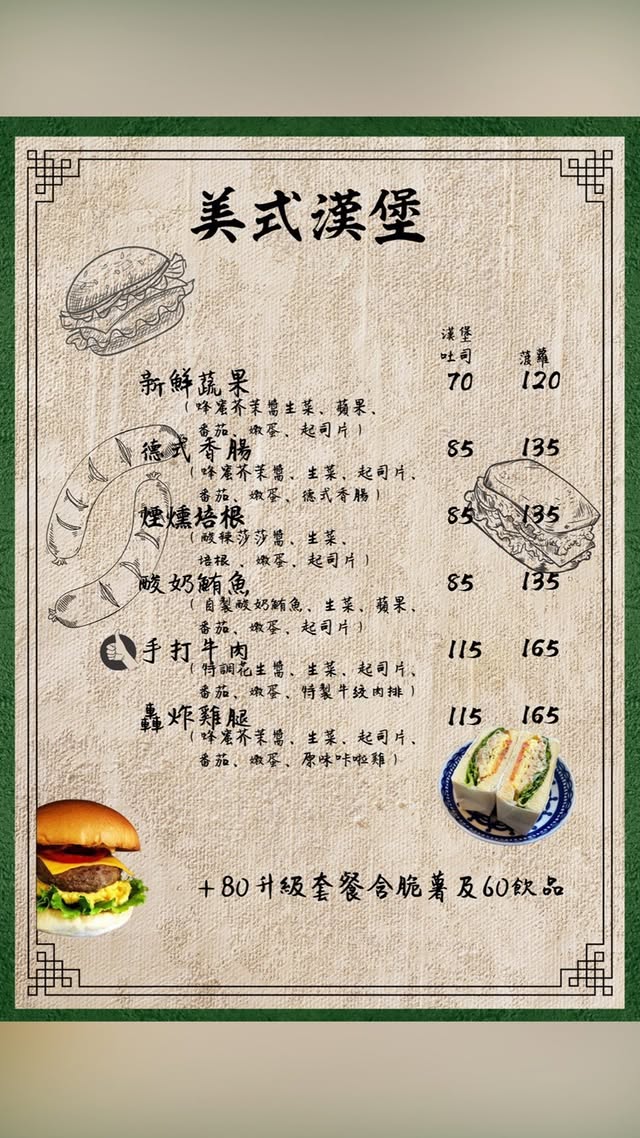 美式漢堡
漢堡
吐司 菠蘿
新鮮蔬果 70 120
(蜂蜜芥茉醬生菜、蘋果、
番茄、嫩蛋、起司片)
德式香腸 85 135
(蜂蜜芥茉醬、生菜、起司片、
番茄、嫩蛋、德式香腸)
煙燻培根 85 135
(酸辣莎莎醬、生菜、
培根、嫩蛋、起司片)
酸奶鮪魚 85 135
(自製酸奶鮪魚、生菜、蘋果、
番茄、嫩蛋、起司片)
手打牛肉 115 165
(特調花生醬、生菜、起司片、
番茄、嫩蛋、特製牛絞肉排)
轟炸雞腿 115 165
(蜂蜜芥茉醬、生菜、起司片、
番茄、嫩蛋、原味咔啦雞)
+80升級套餐含脆薯及60飲品